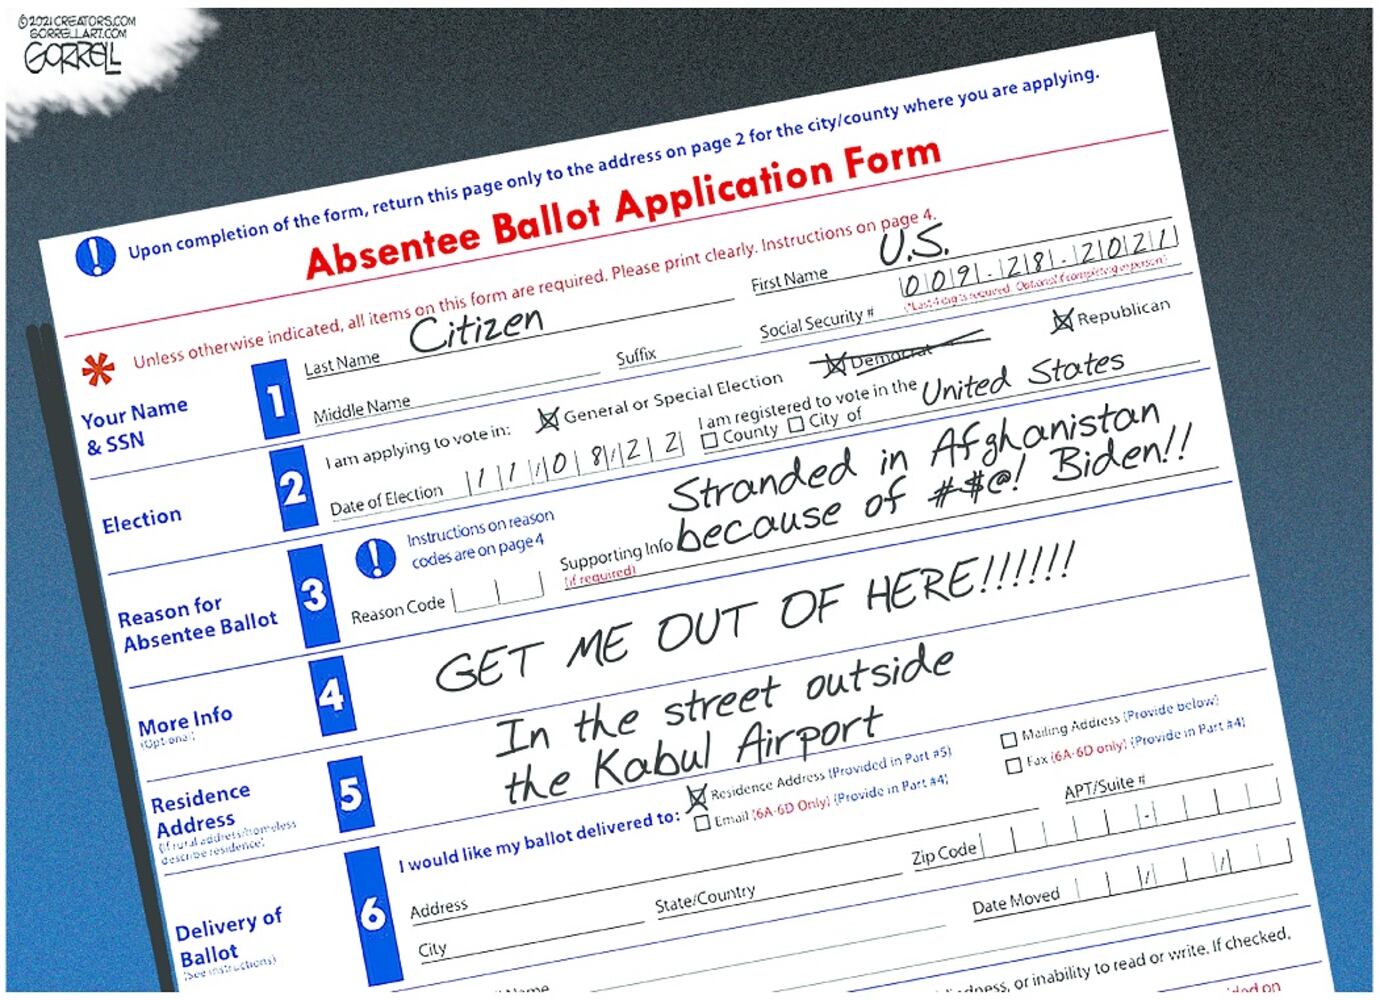 ©2021 CREATORS.COM
GORRELLART.COM
GORRELL
Upon completion of the form, return this page only to the address on page 2 for the city/county where you are applying.
Absentee Ballot Application Form
* Unless otherwise indicated, all items on this form are required. Please print clearly. Instructions on page 4.
Your Name & SSN
1
Last Name Citizen
First Name U.S.
Middle Name
Suffix
Social Security # 009-28-2021
(*Last 4 digits required. Optional if completing in person)
Election
2
I am applying to vote in: X General or Special Election X Democrat X Republican
Date of Election 11/08/22
I am registered to vote in the United States
County City of
Reason for Absentee Ballot
3
! Instructions on reason
codes are on page 4
Reason Code
Supporting Info
(if required)
Stranded in Afghanistan
because of #$@! Biden!!
More Info
(Optional)
4
GET ME OUT OF HERE!!!!!!
Residence Address
(If rural address/homeless
describe residence)
5
In the street outside
the Kabul Airport
Delivery of Ballot
(See instructions)
6
I would like my ballot delivered to: X Residence Address (Provided in Part #5)
Mailing Address (Provide below)
Email (6A-6D Only) (Provide in Part #4)
Fax (6A-6D only) (Provide in Part #4)
Address
APT/Suite #
City
State/Country
Zip Code
Name
Date Moved
or inability to read or write. If checked,